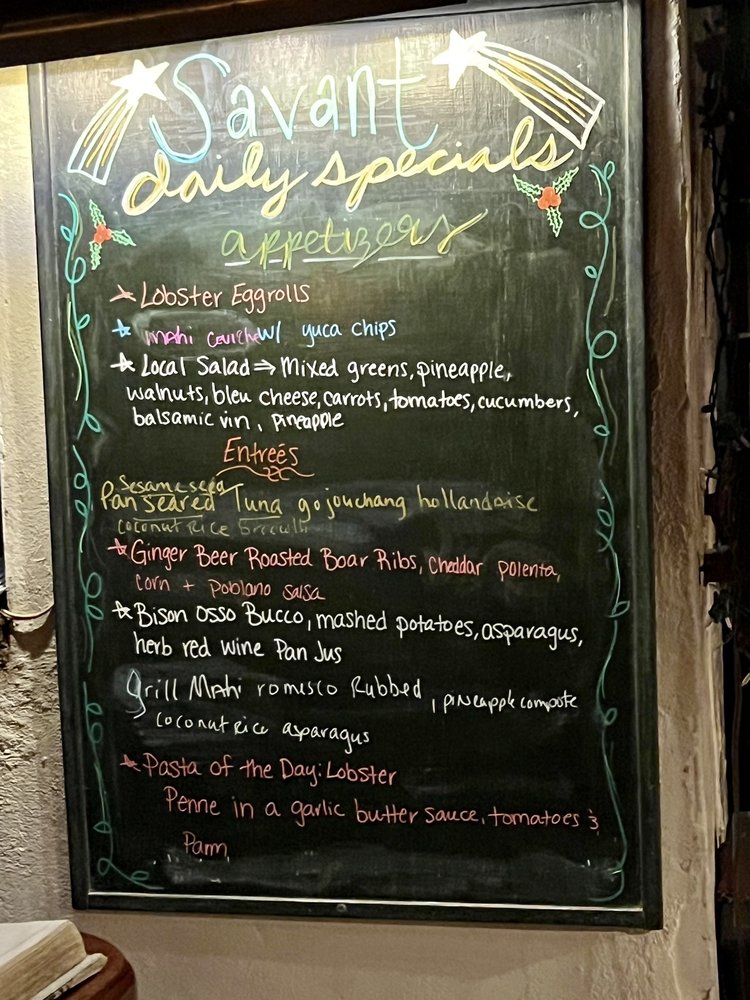 Savant
daily specials
appetizers
Lobster Eggrolls
Mahi Ceviche w/ yuca chips
Local Salad ⇒ Mixed greens, pineapple,
walnuts, bleu cheese, carrots, tomatoes, cucumbers,
balsamic vin, pineapple
Entreés
Sesame seed
Pan Seared Tuna gojouchang hollandaise
coconut Rice
Ginger Beer Roasted Boar Ribs, Cheddar polenta,
corn + poblano salsa
Bison Osso Bucco, mashed potatoes, asparagus,
herb red wine Pan Jus
Grill Mahi romesco Rubbed, pineapple compote
coconut Rice asparagus
Pasta of the Day: Lobster
Penne in a garlic butter sauce, tomatoes &
Parm